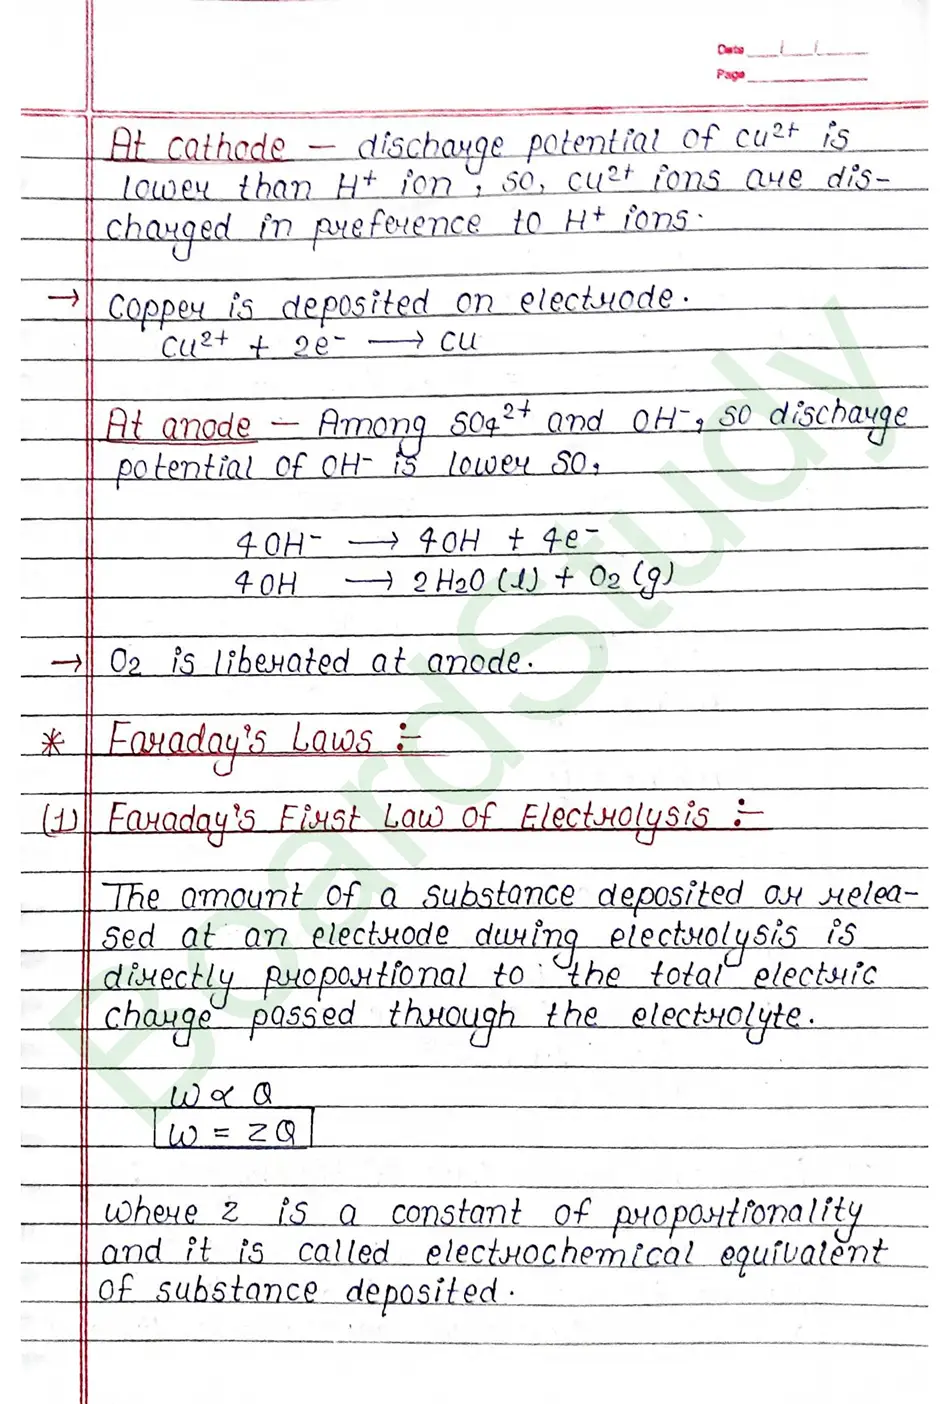 Date / /
Page
At cathode – discharge potential of Cu²⁺ is
lower than H⁺ ion, so, Cu²⁺ ions are dis-
charged in preference to H⁺ ions.
→ Copper is deposited on electrode.
Cu²⁺ + 2e⁻ → Cu
At anode – Among SO₄²⁺ and OH⁻, so discharge
potential of OH⁻ is lower so,
4OH⁻ → 4OH + 4e⁻
4OH → 2H₂O (l) + O₂ (g)
→ O₂ is liberated at anode.
* Faraday's Laws :-
(1) Faraday's First Law of Electrolysis :-
The amount of a substance deposited or relea-
sed at an electrode during electrolysis is
directly proportional to the total electric
charge passed through the electrolyte.
W ∝ Q
W = ZQ
where Z is a constant of proportionality
and it is called electrochemical equivalent
of substance deposited.
BoardStudy